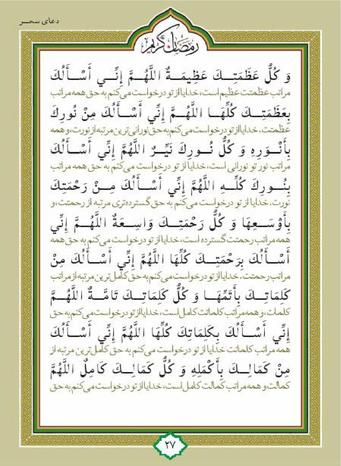 دعای سحر
رمضان کریم
وَ كُلُّ عَظَمَتِكَ عَظِيمَةٌ اللَّهُمَّ إِنِّي أَسْأَلُكَ
مراتب عظمتت عظیم است، خدایا از تو درخواست می‌کنم به حق همه مراتب
بِعَظَمَتِكَ كُلِّهَا اللَّهُمَّ إِنِّي أَسْأَلُكَ مِنْ نُورِكَ
عظمتت، خدایا از تو درخواست می‌کنم به حق نورانی‌ترین مرتبه از نورت، و همه
بِأَنْوَرِهِ وَ كُلُّ نُورِكَ نَيِّرٌ اللَّهُمَّ إِنِّي أَسْأَلُكَ
مراتب نور تو نورانی است، خدایا از تو درخواست می‌کنم به حق همه مراتب
بِنُورِكَ كُلِّهِ اللَّهُمَّ إِنِّي أَسْأَلُكَ مِنْ رَحْمَتِكَ
نورت، خدایا از تو درخواست می‌کنم به حق گسترده‌ترین مرتبه از رحمتت، و
بِأَوْسَعِهَا وَ كُلُّ رَحْمَتِكَ وَاسِعَةٌ اللَّهُمَّ إِنِّي
همه مراتب رحمتت گسترده است، خدایا از تو درخواست می‌کنم به حق همه
أَسْأَلُكَ بِرَحْمَتِكَ كُلِّهَا اللَّهُمَّ إِنِّي أَسْأَلُكَ مِنْ
مراتب رحمتت، خدایا از تو درخواست می‌کنم به حق کامل‌ترین مرتبه از مراتب
كَلِمَاتِكَ بِأَتَمِّهَا وَ كُلُّ كَلِمَاتِكَ تَامَّةٌ اللَّهُمَّ
کلمات، و همه مراتب کلماتت کامل است، خدایا از تو درخواست می‌کنم به حق
إِنِّي أَسْأَلُكَ بِكَلِمَاتِكَ كُلِّهَا اللَّهُمَّ إِنِّي أَسْأَلُكَ
همه مراتب کلماتت خدایا از تو درخواست می‌کنم به حق کامل‌ترین مرتبه از
مِنْ كَمَالِكَ بِأَكْمَلِهِ وَ كُلُّ كَمَالِكَ كَامِلٌ اللَّهُمَّ
کمالت و همه مراتب کمالت کامل است، خدایا از تو درخواست می‌کنم به حق
۲۷